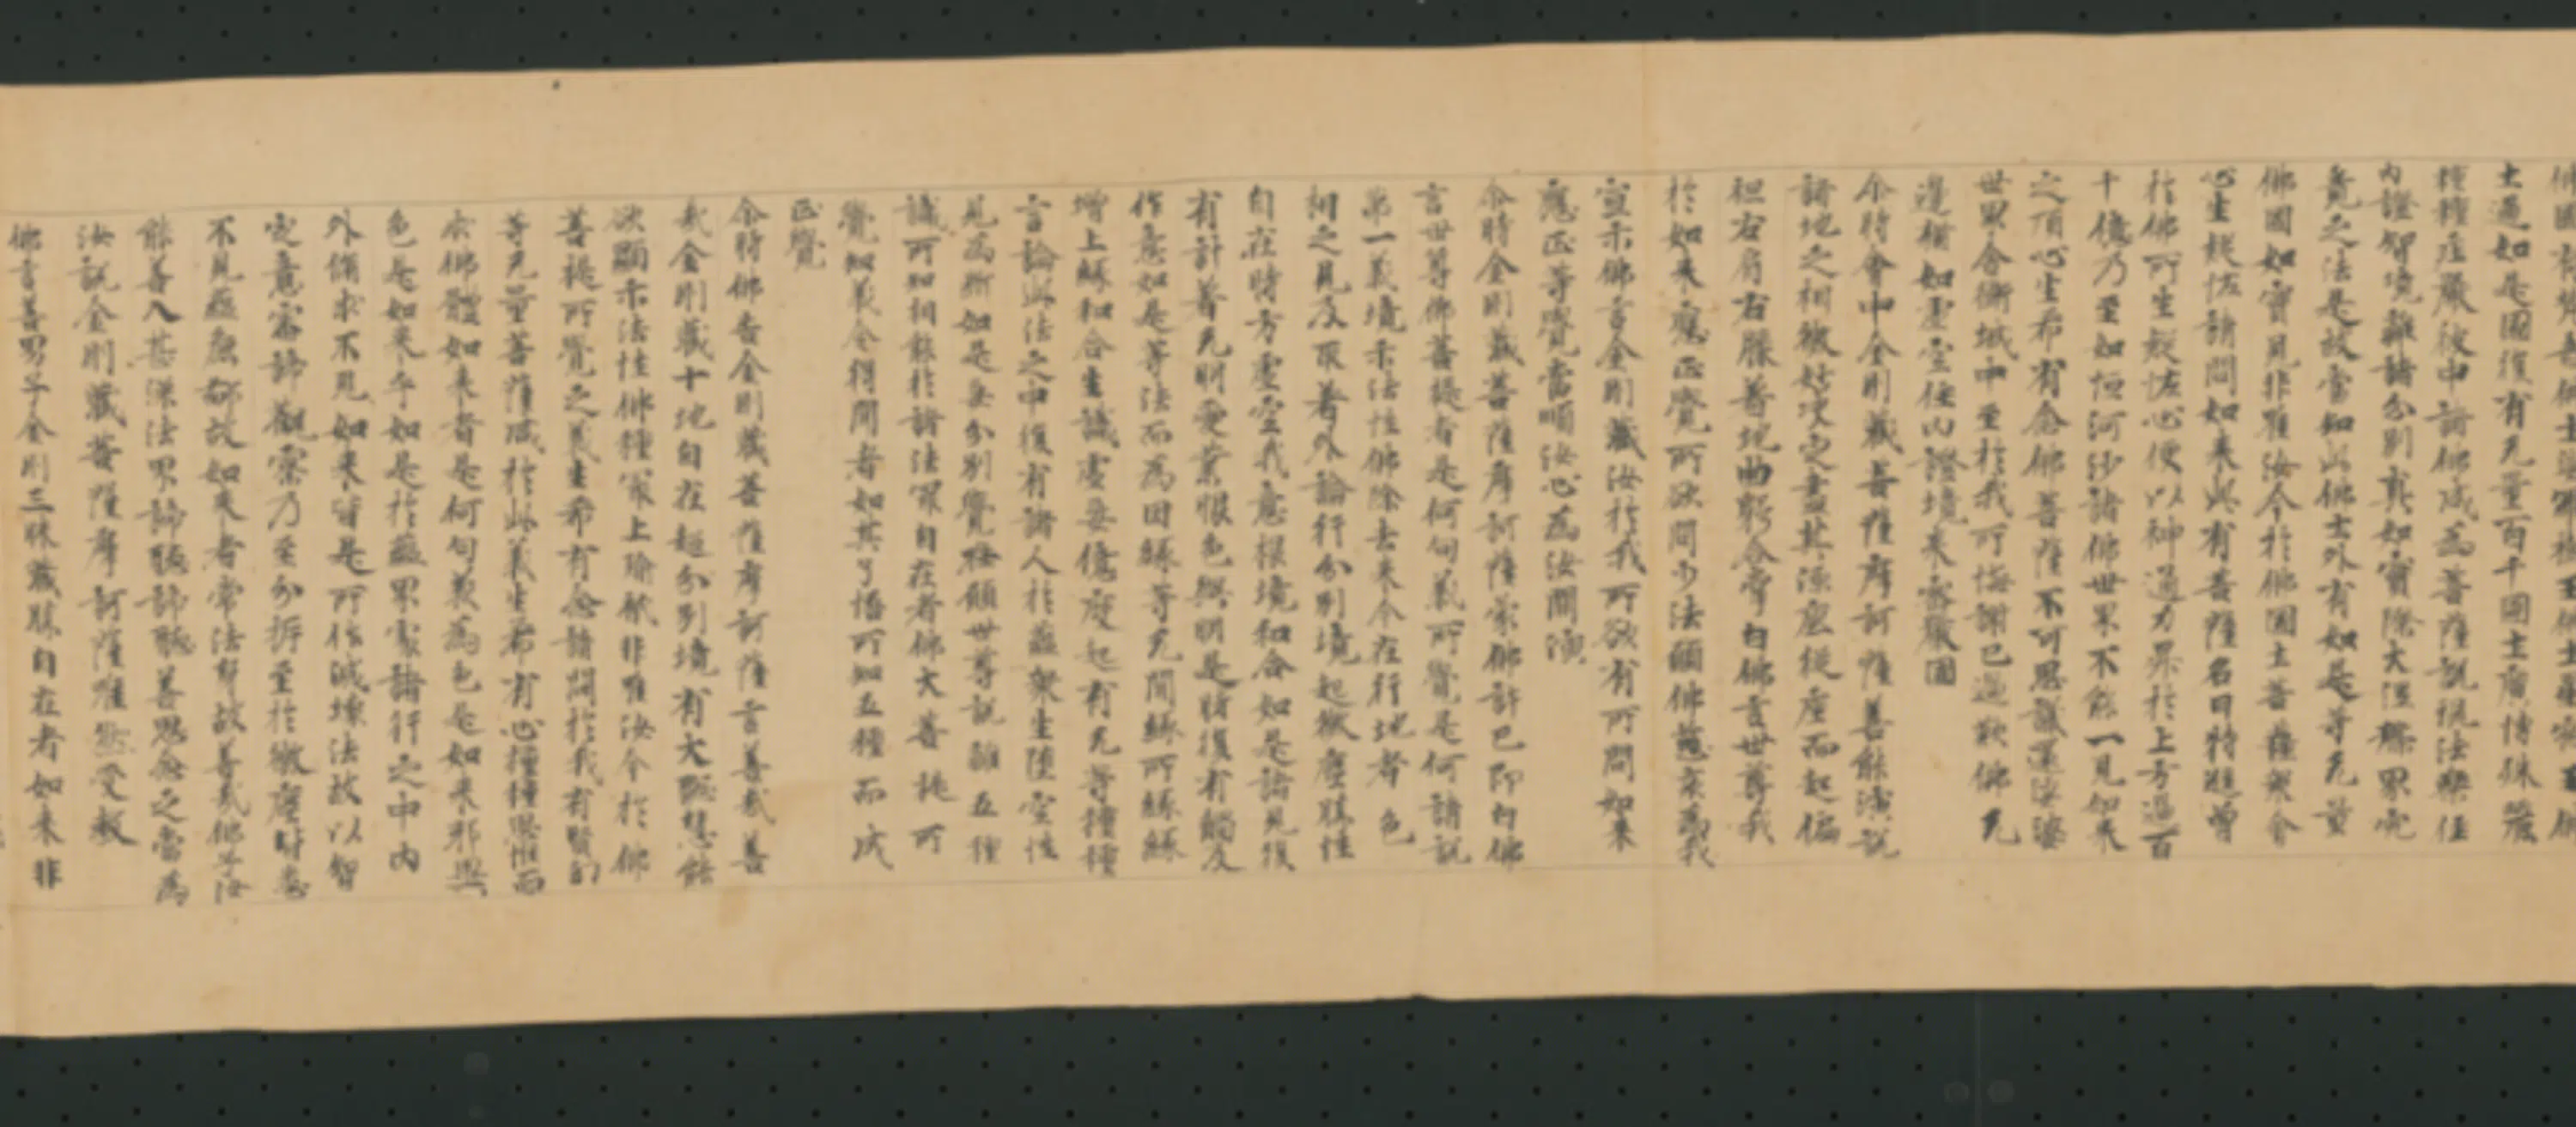 土過如是國復有无量百千國土廣博殊麗
種種莊嚴彼中諸佛咸為菩薩說現法樂住
內證智境離諸分別真如實際大涅槃界究
竟之法是故當知此佛土外有如是等无量
佛國如實見非唯汝今於佛國土菩薩眾會
心生疑恠請問如來此有菩薩名曰持進曾
於佛所生疑恠心便以神通力昇於上方過百
千億乃至如恒河沙諸佛世界不能一見如來
之頂心生希有念佛菩薩不可思議還至娑婆
世界舍衛城中至於我所悔謝已過歎佛无
邊猶如虛空住內證境來密嚴國
尒時會中金剛藏菩薩摩訶薩善能演說
諸地之相微妙決定盡其源底從座而起偏
袒右肩右膝著地曲躬合掌白佛言世尊我
於如來應正等覺所欲問少法願佛慈哀為我
宣示佛言金剛藏汝於我所欲有所問如來
應正等覺當順汝心為汝開演
尒時金剛藏菩薩摩訶薩蒙佛許已即白佛
言世尊佛菩提者是何句義所覺是何請說
第一義境示法性佛除去來今在行地者色
相之見及取著外論行分別境起微塵勝性
自在時方虛空我意根境和合如是諸見復
有計著无明愛業眼色與明是時復有觸及
作意如是等法而為因緣等无間緣所緣緣
增上緣和合生識虛妄儔度起有无等種種
言論此法之中復有諸人於蘊眾生墮空性
見為斷如是妄分別覺唯願世尊說離五種
識所知相能於諸法最自在者佛大菩提所
覺知義令得聞者如其了悟所知五種而成
正覺
尒時佛告金剛藏菩薩摩訶薩言善哉善
哉金剛藏十地自在超分別境有大聰慧能
欲顯示法性佛種最上瑜祇非唯汝今於佛
菩提所覺之義生希有念請問於我有賢幻
等无量菩薩咸於此義生希有心種種思惟而
求佛體如來者是何句義為色是如來耶異
色是如來乎如是於蘊界處諸行之中內
外循求不見如來皆是所作滅壞法故以智
定意審諦觀察乃至分析至於微塵時悉
不見蘊麁鄙故如來者常法身故善哉佛子汝
能善入甚深法界諦聽諦聽善思念之當為
汝說金剛藏菩薩摩訶薩唯然受教
佛言善男子金剛三昧藏勝自在者如來非